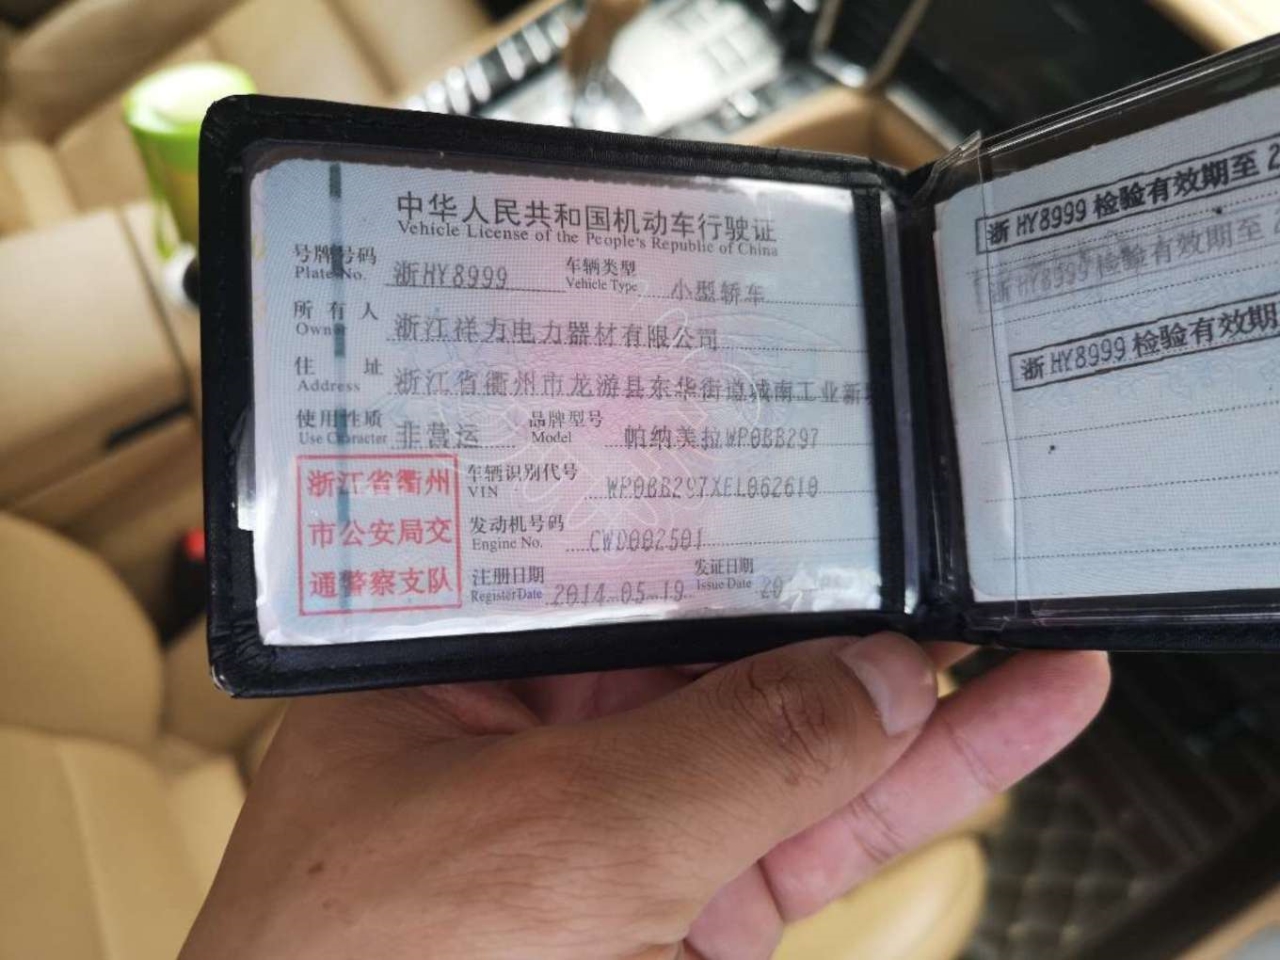 中华人民共和国机动车行驶证
Vehicle License of the People's Republic of China
号牌号码 浙HY8999 车辆类型 小型轿车
Plate No. Vehicle Type
所有人 浙江祥力电力器材有限公司
Owner
住址 浙江省衢州市龙游县东华街道城南工业新
Address
使用性质 非营运 品牌型号 帕纳美拉WP0BB297
Use Character Model
车辆识别代号 WP0BB297XEL062610
VIN
发动机号码 CWD002501
Engine No.
注册日期 2014-05-19 发证日期 20
Register Date Issue Date
浙江省衢州
市公安局交
通警察支队
浙HY8999检验有效期至2
浙HY8999检验有效期至
浙HY8999检验有效期